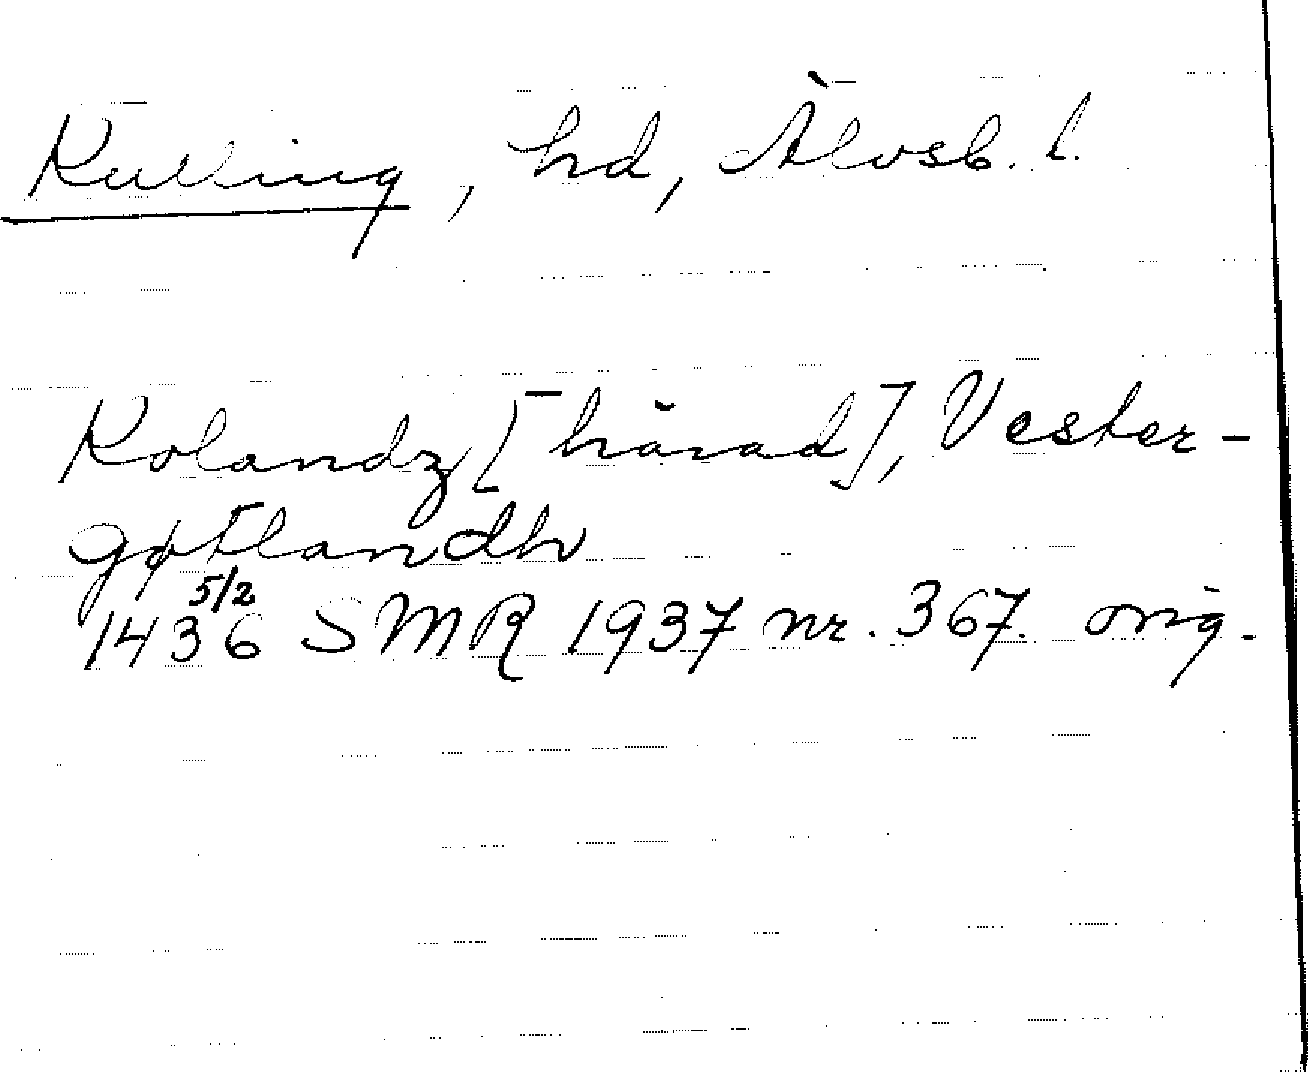 Kulling, hd, Älvsb. l.
Kolandz [härad], Vester-
gøtlandh
1436 5/2 SMR 1937 nr. 367. orig.